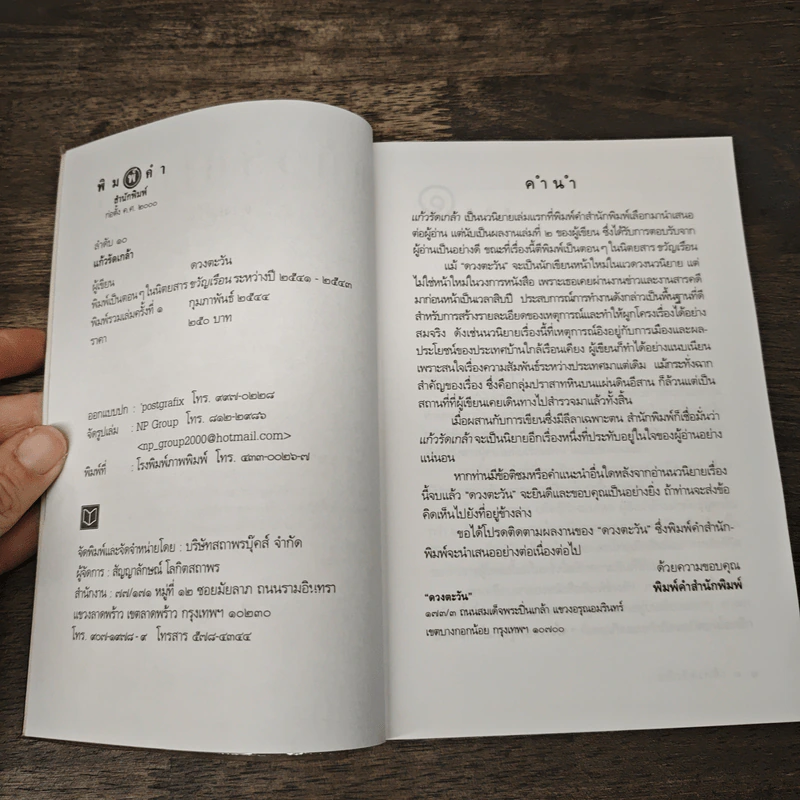 พิมพ์คำ
สำนักพิมพ์
ก่อตั้ง ค.ศ. ๒๐๐๐
ลำดับ ๑๐
แก้วรัดเกล้า
ผู้เขียน ดวงตะวัน
พิมพ์เป็นตอนๆ ในนิตยสาร ขวัญเรือน ระหว่างปี ๒๕๔๑ - ๒๕๔๓
พิมพ์รวมเล่มครั้งที่ ๑ กุมภาพันธ์ ๒๕๔๔
ราคา ๒๕๐ บาท
ออกแบบปก : 'postgrafix โทร. ๙๙๗-๐๒๒๘
จัดรูปเล่ม : NP Group โทร. ๘๑๒-๒๙๘๖
<np_group2000@hotmail.com>
พิมพ์ที่ : โรงพิมพ์ภาพพิมพ์ โทร. ๔๓๓-๐๐๒๖-๗
จัดพิมพ์และจัดจำหน่ายโดย : บริษัทสถาพรบุ๊คส์ จำกัด
ผู้จัดการ : สัญญาลักษณ์ โลกิตสถาพร
สำนักงาน : ๗๗/๑๗๑ หมู่ที่ ๑๒ ซอยมัยลาภ ถนนรามอินทรา
แขวงลาดพร้าว เขตลาดพร้าว กรุงเทพฯ ๑๐๒๓๐
โทร. ๙๐๗-๑๙๗๘-๙ โทรสาร ๕๗๘-๔๓๔๔
คำนำ
แก้วรัดเกล้า เป็นนวนิยายเล่มแรกที่พิมพ์คำสำนักพิมพ์เลือกมานำเสนอ
ต่อผู้อ่าน แต่นับเป็นผลงานเล่มที่ ๒ ของผู้เขียน ซึ่งได้รับการตอบรับจาก
ผู้อ่านเป็นอย่างดี ขณะที่เรื่องนี้ตีพิมพ์เป็นตอนๆ ในนิตยสาร ขวัญเรือน
แม้ "ดวงตะวัน" จะเป็นนักเขียนหน้าใหม่ในแวดวงนวนิยาย แต่
ไม่ใช่หน้าใหม่ในวงการหนังสือ เพราะเธอเคยผ่านงานข่าวและงานสารคดี
มาก่อนหน้าเป็นเวลาสิบปี ประสบการณ์การทำงานดังกล่าวเป็นพื้นฐานที่ดี
สำหรับการสร้างรายละเอียดของเหตุการณ์และทำให้ผูกโครงเรื่องได้อย่าง
สมจริง ดังเช่นนวนิยายเรื่องนี้ที่เหตุการณ์อิงอยู่กับการเมืองและผล-
ประโยชน์ของประเทศบ้านใกล้เรือนเคียง ผู้เขียนก็ทำได้อย่างแนบเนียน
เพราะสนใจเรื่องความสัมพันธ์ระหว่างประเทศมาแต่เดิม แม้กระทั่งฉาก
สำคัญของเรื่อง ซึ่งคือกลุ่มปราสาทหินบนแผ่นดินอีสาน ก็ล้วนแต่เป็น
สถานที่ที่ผู้เขียนเคยเดินทางไปสำรวจมาแล้วทั้งสิ้น
เมื่อผสานกับการเขียนซึ่งมีลีลาเฉพาะตน สำนักพิมพ์ก็เชื่อมั่นว่า
แก้วรัดเกล้า จะเป็นนิยายอีกเรื่องหนึ่งที่ประทับอยู่ในใจของผู้อ่านอย่าง
แน่นอน
หากท่านมีข้อติชมหรือคำแนะนำอื่นใดหลังจากอ่านนวนิยายเรื่อง
นี้จบแล้ว "ดวงตะวัน" จะยินดีและขอบคุณเป็นอย่างยิ่ง ถ้าท่านจะส่งข้อ
คิดเห็นไปยังที่อยู่ข้างล่าง
ขอได้โปรดติดตามผลงานของ "ดวงตะวัน" ซึ่งพิมพ์คำสำนัก-
พิมพ์จะนำเสนออย่างต่อเนื่องต่อไป
ด้วยความขอบคุณ
พิมพ์คำสำนักพิมพ์
"ดวงตะวัน"
๑๗๓/๓ ถนนสมเด็จพระปิ่นเกล้า แขวงอรุณอมรินทร์
เขตบางกอกน้อย กรุงเทพฯ ๑๐๗๐๐